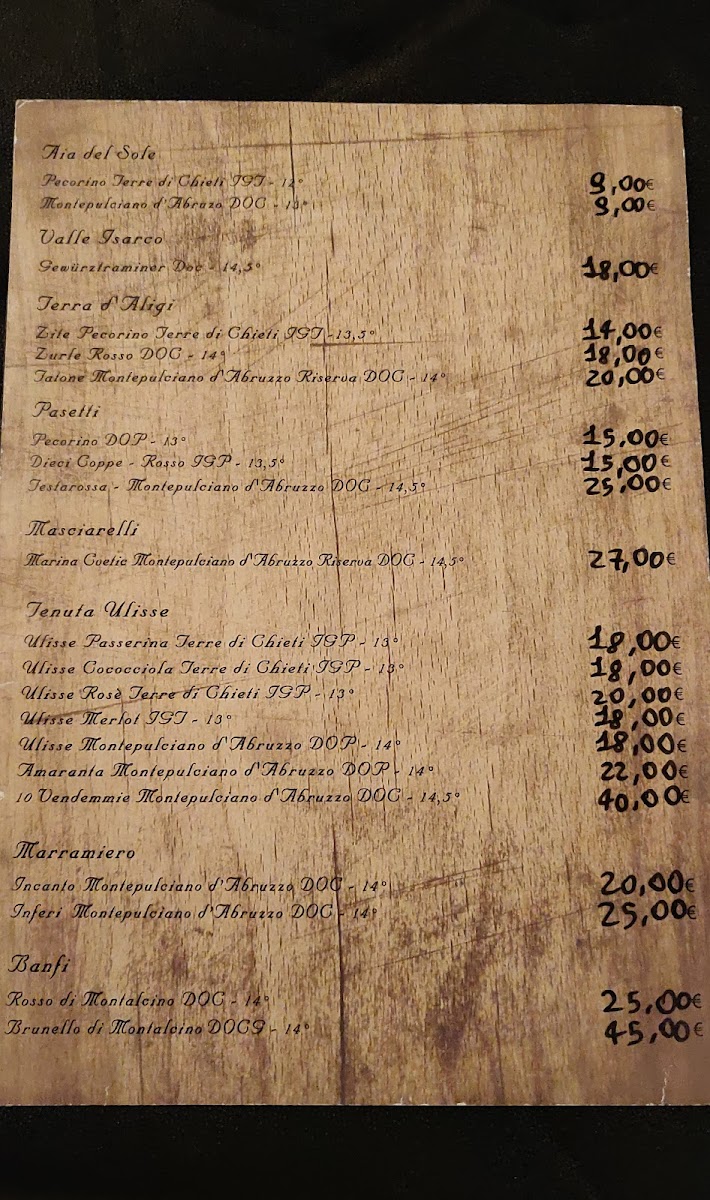 Aia del Sole
Pecorino Terre di Chieti IGT - 12° 9,00€
Montepulciano d'Abruzo DOC - 13° 9,00€
Valle Isarco
Gewürztraminer Doc - 14,5° 18,00€
Terra d'Aligi
Zite Pecorino Terre di Chieti IGT -13,5° 14,00€
Zurle Rosso DOC - 14° 18,00€
Tatone Montepulciano d'Abruzzo Riserva DOC - 14° 20,00€
Pasetti
Pecorino DOP - 13° 15,00€
Dieci Coppe - Rosso IGP - 13,5° 15,00€
Testarossa - Montepulciano d'Abruzzo DOC - 14,5° 25,00€
Masciarelli
Marina Cvetic Montepulciano d'Abruzzo Riserva DOC - 14,5° 27,00€
Tenuta Ulisse
Ulisse Passerina Terre di Chieti IGP - 13° 18,00€
Ulisse Cococciola Terre di Chieti IGP - 13° 18,00€
Ulisse Rosè Terre di Chieti IGP - 13° 20,00€
Ulisse Merlot IGT - 13° 18,00€
Ulisse Montepulciano d'Abruzzo DOP - 14° 18,00€
Amaranta Montepulciano d'Abruzzo DOP - 14° 22,00€
10 Vendemmie Montepulciano d'Abruzzo DOC - 14,5° 40,00€
Marramiero
Incanto Montepulciano d'Abruzzo DOC - 14° 20,00€
Inferi Montepulciano d'Abruzzo DOC - 14° 25,00€
Banfi
Rosso di Montalcino DOC - 14° 25,00€
Brunello di Montalcino DOCG - 14° 45,00€